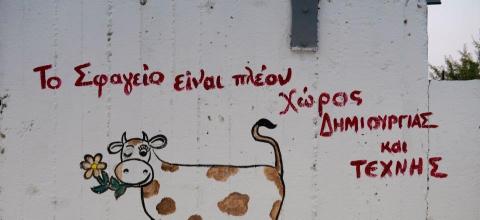 Το Σφαγείο είναι πλέον
Χώρος
ΔΗΜΙΟΥΡΓΙΑΣ
και
ΤΕΧΝΗΣ